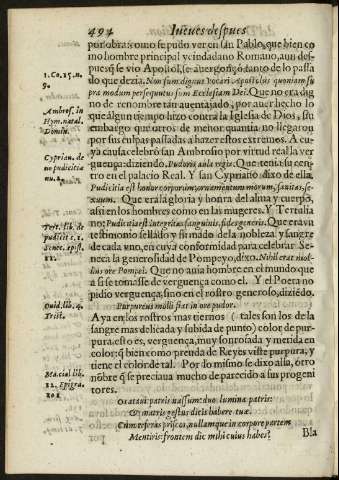 494 Iueues despues
por obras como se pudo ver en san Pablo, que bien co
mo hombre principal y ciudadano Romano, aun des
pues q̃ se vio Apostol, se auergonçò tanto de lo passa
do que dezia. Non sum dignus vocari Apostolus quoniam su
pra modum persequutus sum Ecclesiam Dei. Que no era dig
no de renombre tan auentajado, por auer hecho lo
que algun tiempo hizo contra la Iglesia de Dios, sin
embargo que otros de menor quantia no llegaron
por sus culpas passadas a hazer estos extremos. A cu
ya causa celebrò san Ambrosio por virtud real la ver
guença: diziendo. Pudoris aula regia. Que tenia su cen
tro en el palacio Real. Y san Cypriano dixo de ella.
Pudicitia est honor corporum, ornamentum morum, sanitas, se-
xuum. Que era la gloria y honra del alma y cuerpo,
assi en los hombres como en las mugeres. Y Tertulia
no: Pudicitia est integritas sanguinis, fides generis. Que era vn
testimonio sellado y firmado de la nobleza y sangre
de cada vno, en cuya conformidad para celebrar Se-
neca la generosidad de Pompeyo, dixo. Nihil erat mol-
lius ore Pompei. Que no auia hombre en el mundo que
a si se tomasse de verguença como el. Y el Poeta no
pidio verguença, sino en el rostro generoso, diziẽdo.
Purpureus molli fiat in ore pudor.
Aya en los rostros mas tiernos (tales son los de la
sangre mas delicada y subida de punto) color de pur-
pura, esto es, verguença, muy sonrosada y metida en
color; q̃ bien como prenda de Reyes viste purpura, y
tiene el color de tal. Por lo mismo se dixo allà, otro
nõbre q̃ se preciaua mucho de parecido a sus progeni
tores.
Os ataui patris nassum: duo lumina patris:
& matris gestus dicis habere tuæ.
Cum referas priscos, nullamque in corpore partem
Mentiris: frontem dic mihi cuius habes?
Bla
1. Co. 15. n.
9.
Ambros. in
Hym. natal.
Domin.
Cyprian. de
pudicitia
nu. 2.
Tert. lib. de
pudicit. c. 1.
Senec. epist.
11.
Ouid. lib. 4.
Trist.
Marcial lib.
12. Epigra.